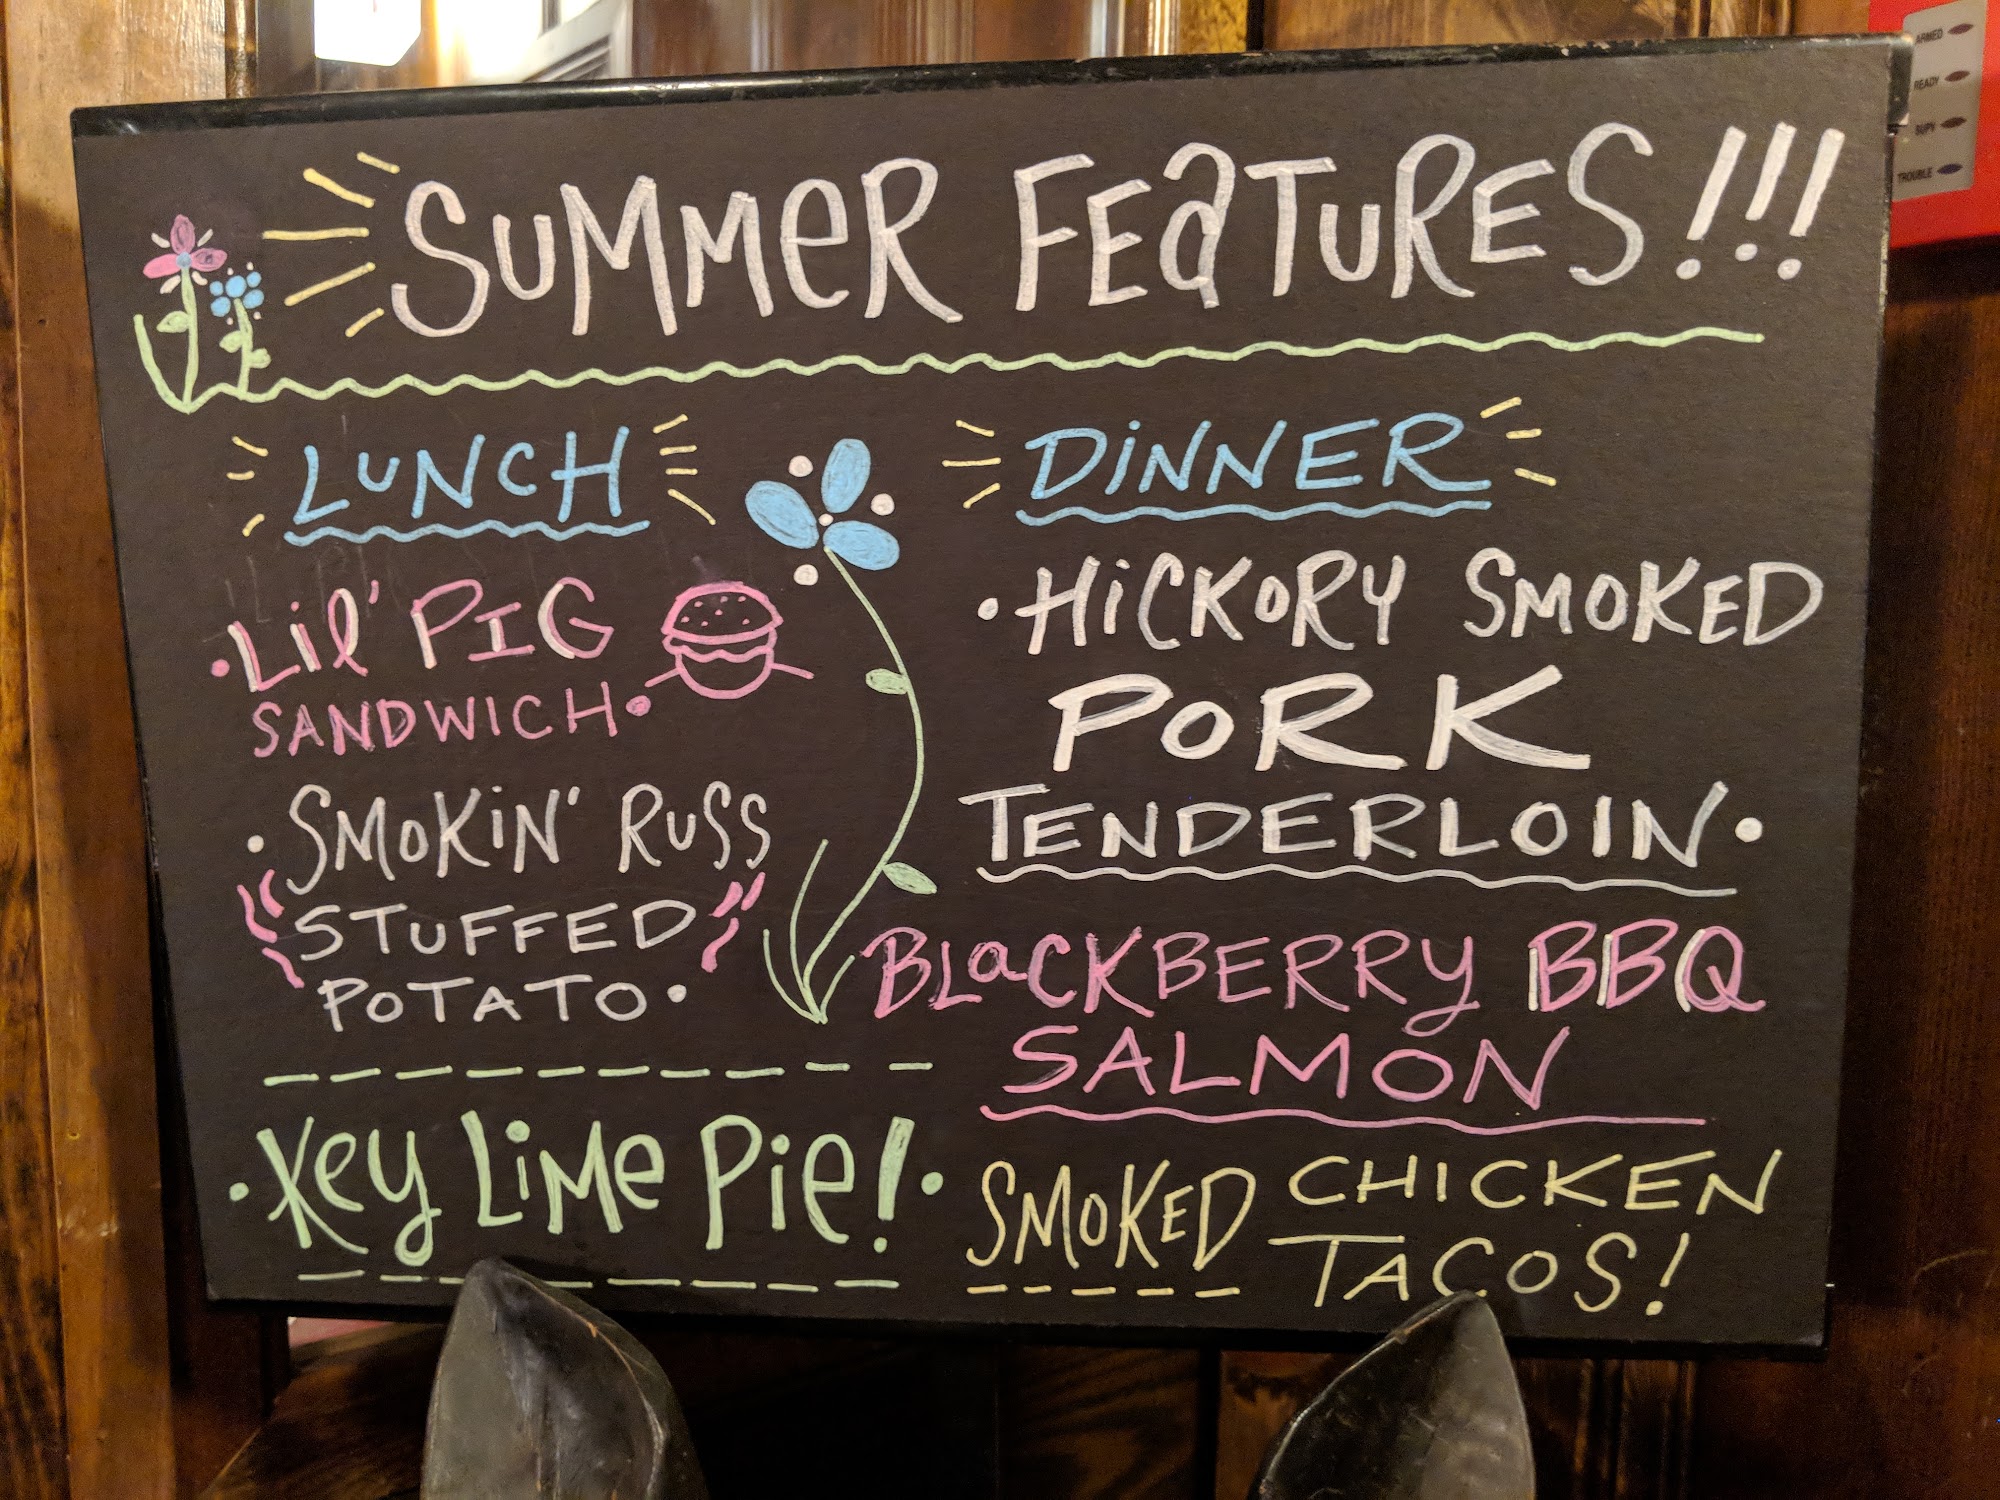 SUMMeR FEaTuRES!!!
LuNCH
Lil' PIG
SANDWICH
SMoKiN' RuSS
STUFFED
PoTATO
Key LiMe Pie!
DiNNER
HiCKoRY SMOKED
PoRK
TENDERLOIN
BLaCKBERRy BBQ
SALMON
SMoKED CHICKEN
TACOS!
ARMED
READY
SUPV
TROUBLE